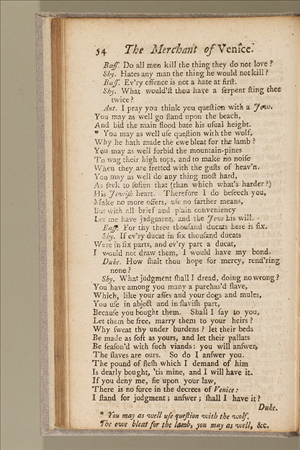 54 The Merchant of Venice.
Bass. Do all men kill the thing they do not love?
Shy. Hates any man the thing he would not kill?
Bass. Ev'ry offence is not a hate at first.
Shy. What would'st thou have a serpent sting thee
twice?
Ant. I pray you think you question with a Jew.
You may as well go stand upon the beach,
And bid the main flood bate his usual height.
* You may as well use question with the wolf,
Why he hath made the ewe bleat for the lamb?
You may as well forbid the mountain-pines
To wag their high tops, and to make no noise
When they are fretted with the gusts of heav'n.
You may as well do any thing most hard,
As seek to soften that (than which what's harder?)
His Jewish heart. Therefore I do beseech you,
Make no more offers, use no farther means,
But with all brief and plain conveniency
Let me have judgment, and the Jew his will.
Bass. For thy three thousand ducats here is six.
Shy. If ev'ry ducat in six thousand ducats
Were in six parts, and ev'ry part a ducat,
I would not draw them, I would have my bond.
Duke. How shalt thou hope for mercy, rend'ring
none?
Shy. What judgment shall I dread, doing no wrong?
You have among you many a purchas'd slave,
Which, like your asses and your dogs and mules,
You use in abject and in slavish part,
Because you bought them. Shall I say to you,
Let them be free, marry them to your heirs?
Why sweat thy under burdens? let their beds
Be made as soft as yours, and let their pallats
Be season'd with such viands: you will answer,
The slaves are ours. So do I answer you.
The pound of flesh which I demand of him
Is dearly bought, 'tis mine, and I will have it.
If you deny me, fie upon your law,
There is no force in the decrees of Venice:
I stand for judgment; answer; shall I have it?
Duke.
* You may as well use question with the wolf,
The ewe bleat for the lamb, you may as well, &c.